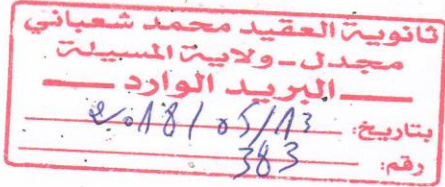 ثانوية العقيد محمد شعباني
مجدل - ولاية المسيلة
البريد الوارد
بتاريخ: 2018/05/13
رقم: 383